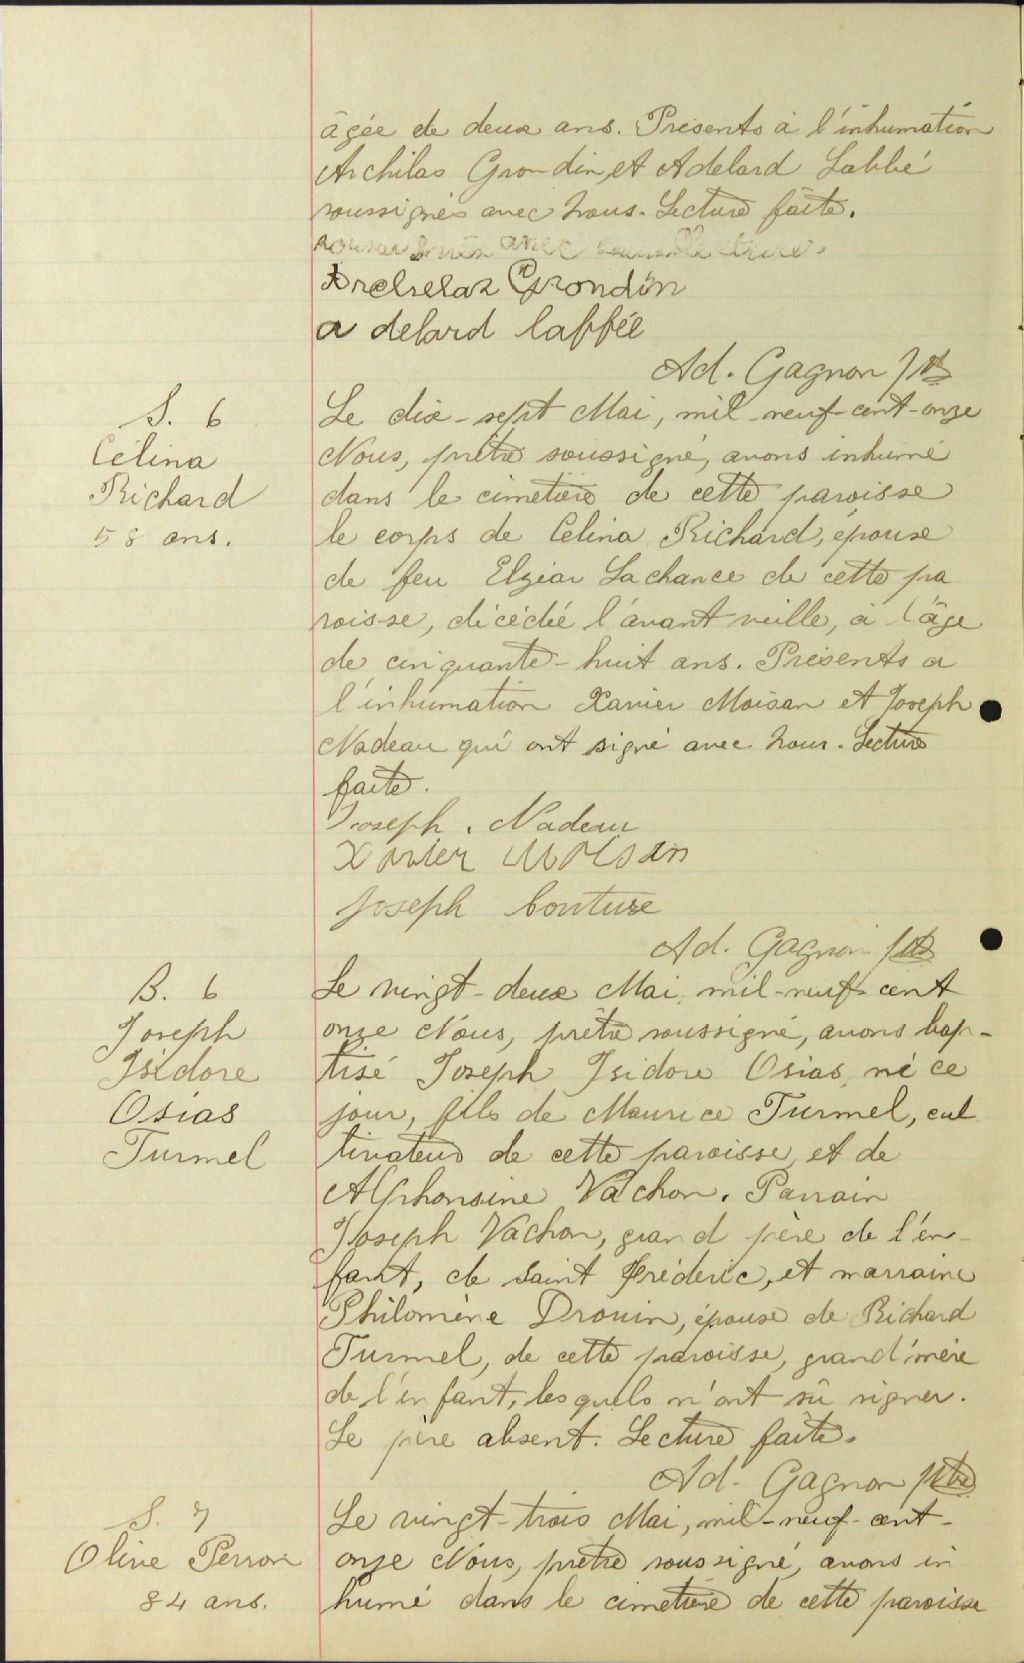 âgée de deux ans. Présents à l'inhumation
Archilas Grondin, et Adelard Labbé
soussignés avec nous. Lecture faite.
avec
Grondin
a delard labbée
Ad. Gagnon ptre
S. 6
Célina
Richard
58 ans.
Le dix-sept Mai, mil-neuf-cent-onze
Nous, prêtre soussigné, avons inhumé
dans le cimetière de cette paroisse
le corps de Celina Richard, épouse
de feu Elzéar Lachance de cette pa
roisse, décédée l'avant veille, à l'âge
de cinquante-huit ans. Présents a
l'inhumation Xavier Moisan et Joseph
Nadeau qui ont signé avec nous. Lecture
faite.
Joseph. Nadeau
Xavier Moisan
Joseph Couture
Ad. Gagnon ptre
B. 6
Joseph
Isidore
Osias
Turmel
Le vingt-deux Mai, mil-neuf-cent
onze Nous, prêtre soussigné, avons bap-
tisé Joseph Isidore Osias, né ce
jour, fils de Maurice Turmel, cul
tivateur de cette paroisse, et de
Alphonsine Vachon. Parrain
Joseph Vachon, grand père de l'en-
fant, de Saint Fréderic, et marraine
Philomène Drouin, épouse de Richard
Turmel, de cette paroisse, grand'mère
de l'enfant, lesquels n'ont sû signer.
Le père absent. Lecture faite.
Ad. Gagnon ptre
S. 7
Olive Perron
84 ans.
Le vingt-trois Mai, mil-neuf-cent-
onze Nous, prêtre soussigné, avons in
humé dans le cimetière de cette paroisse